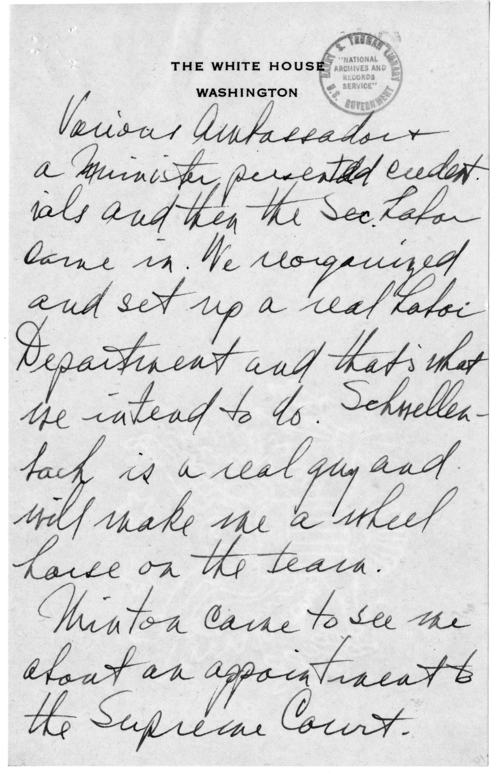 THE WHITE HOUSE
WASHINGTON
HARRY S. TRUMAN LIBRARY
"NATIONAL
ARCHIVES AND
RECORDS
SERVICE"
U.S. GOVERNMENT
Various Ambassadors +
a Minister presented credent-
ials and then the Sec. Labor
came in. We reorganized
and set up a real Labor
Department and that's what
we intend to do. Schwellen-
bach is a real guy and
will make me a wheel
horse on the team.
Minton came to see me
about an appointment to
the Supreme Court.